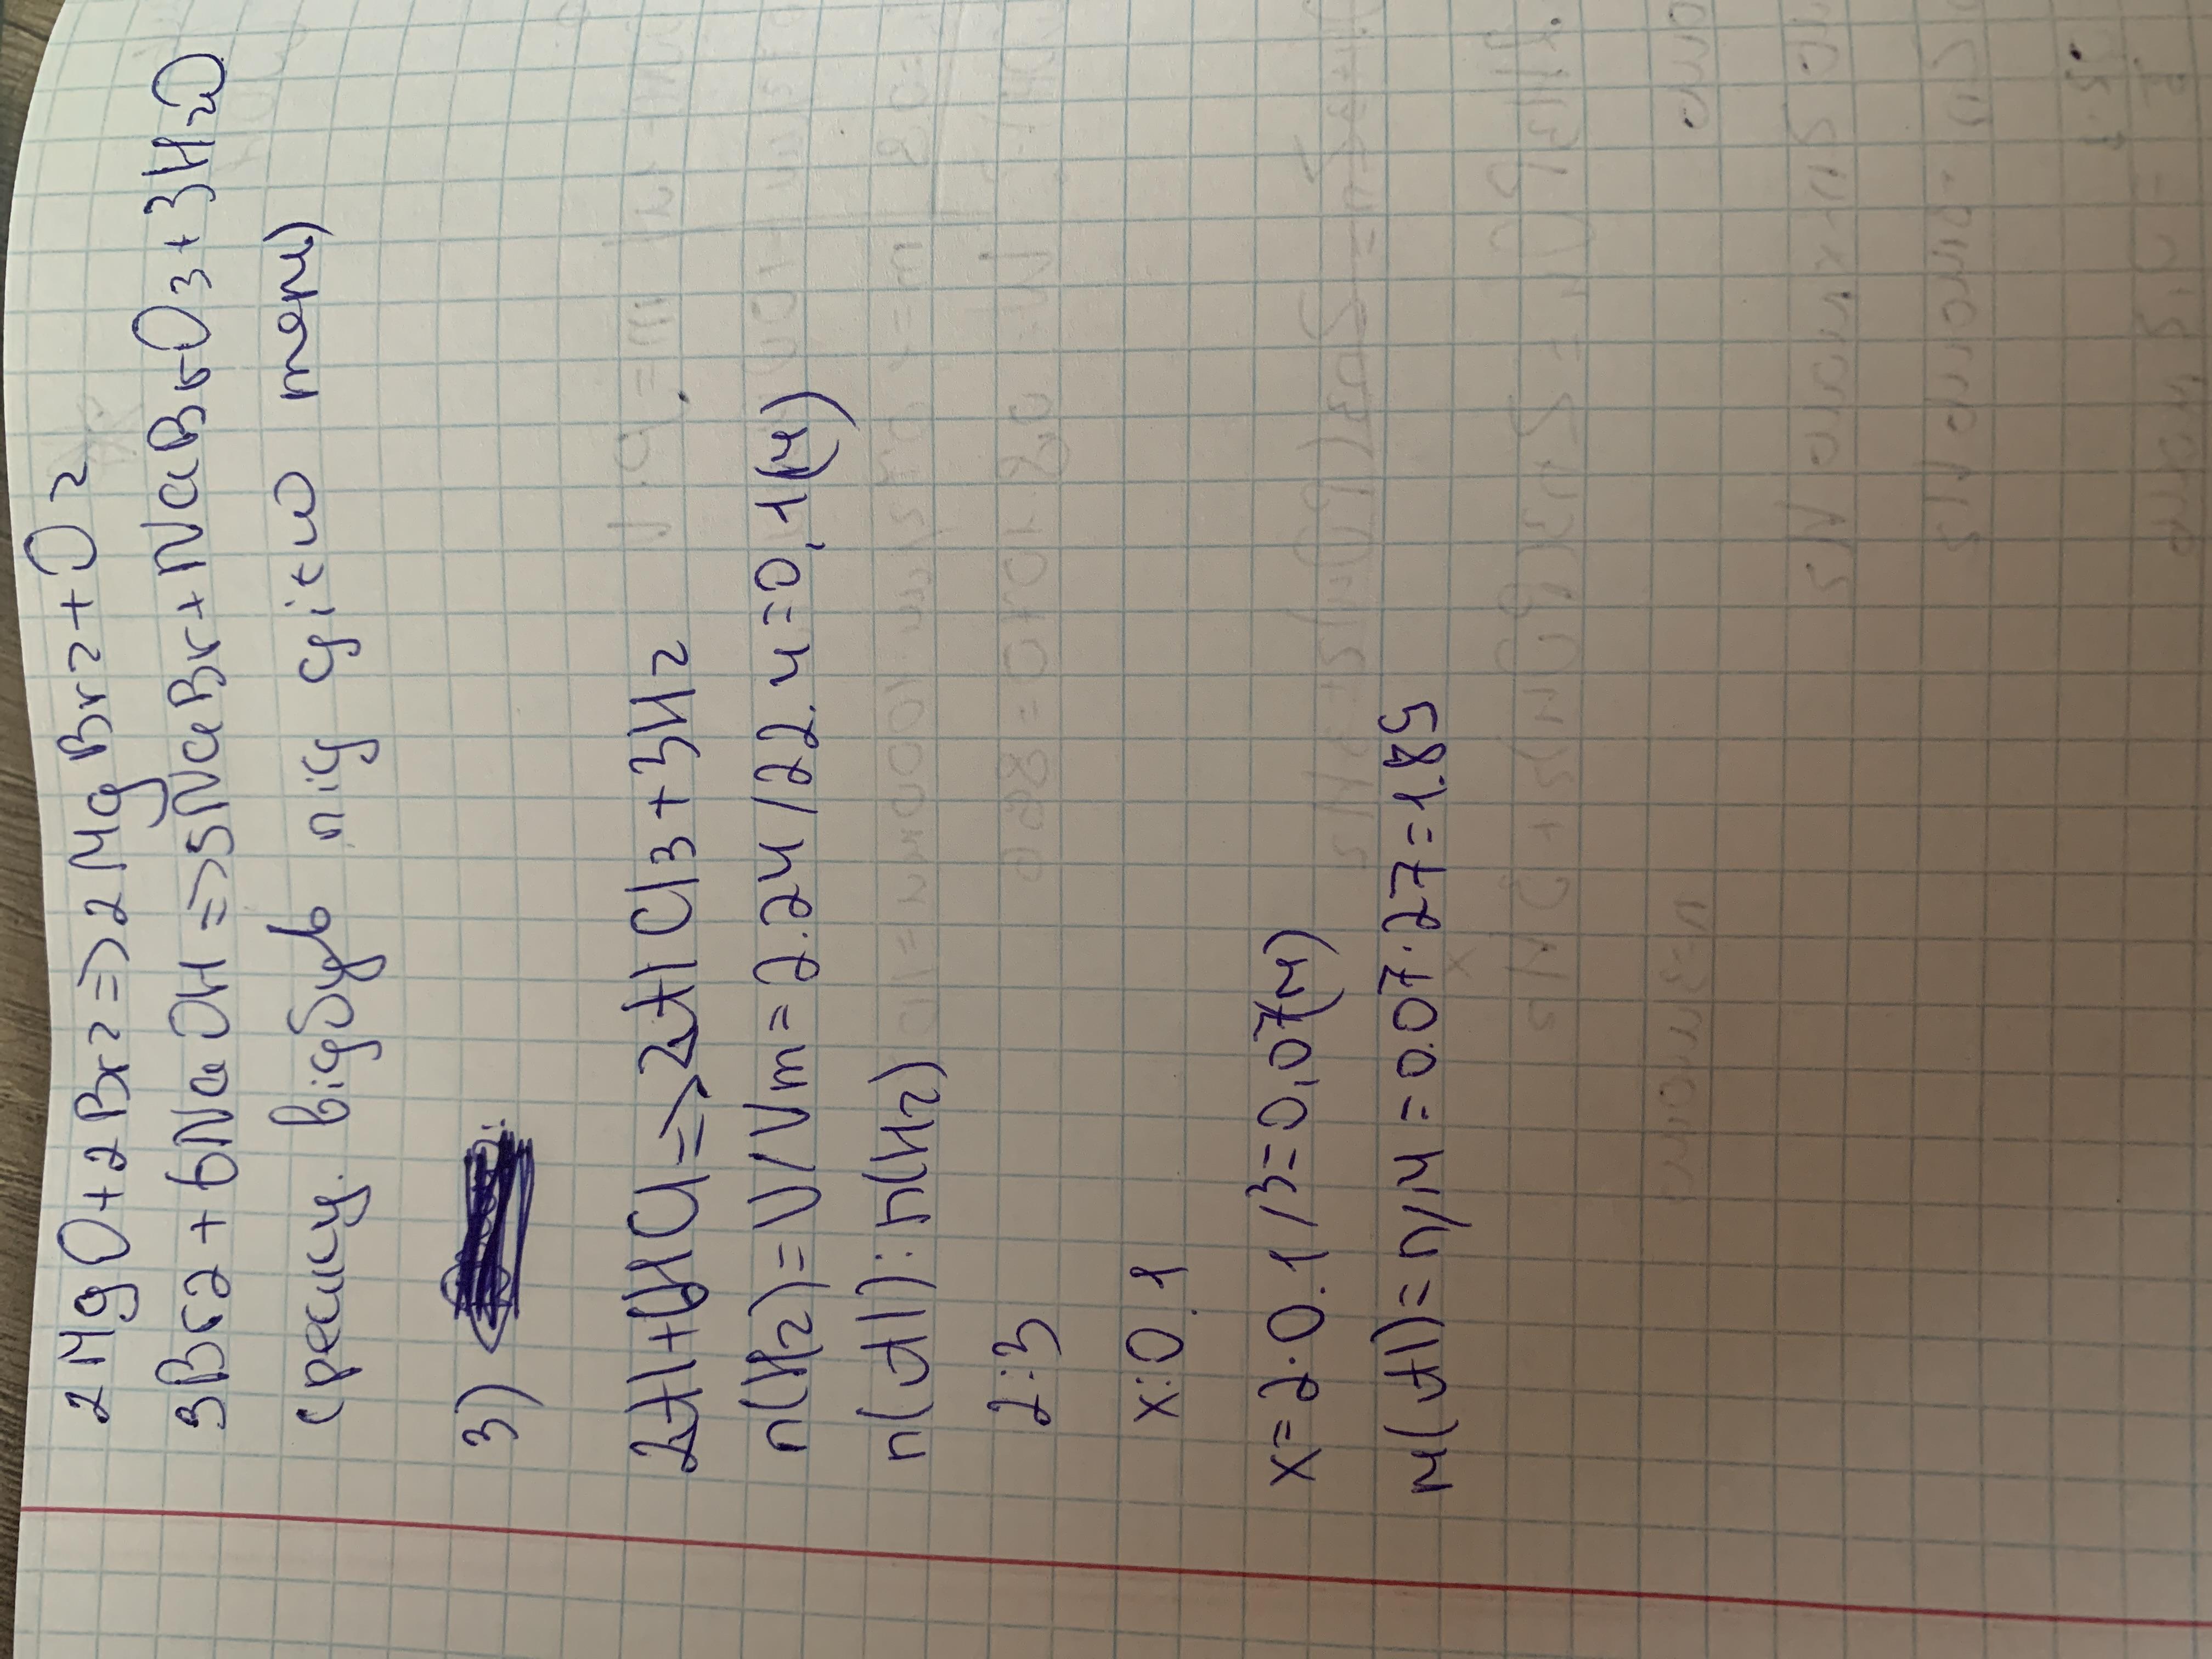 2MgO+2Br2=>2MgBr2+O2
3Br2+6NaOH=>5NaBr+NaBrO3+3H2O
(реакц. відбув під дією темп)
3)
2Al+6HCl=>2AlCl3+3H2
n(H2)=V/Vm=2.24/22.4=0,1(м)
n(Al):n(H2)
2:3
x:0.1
x=2·0.1/3=0,07(м)
м(Al)=n/M=0.07·27=1.85